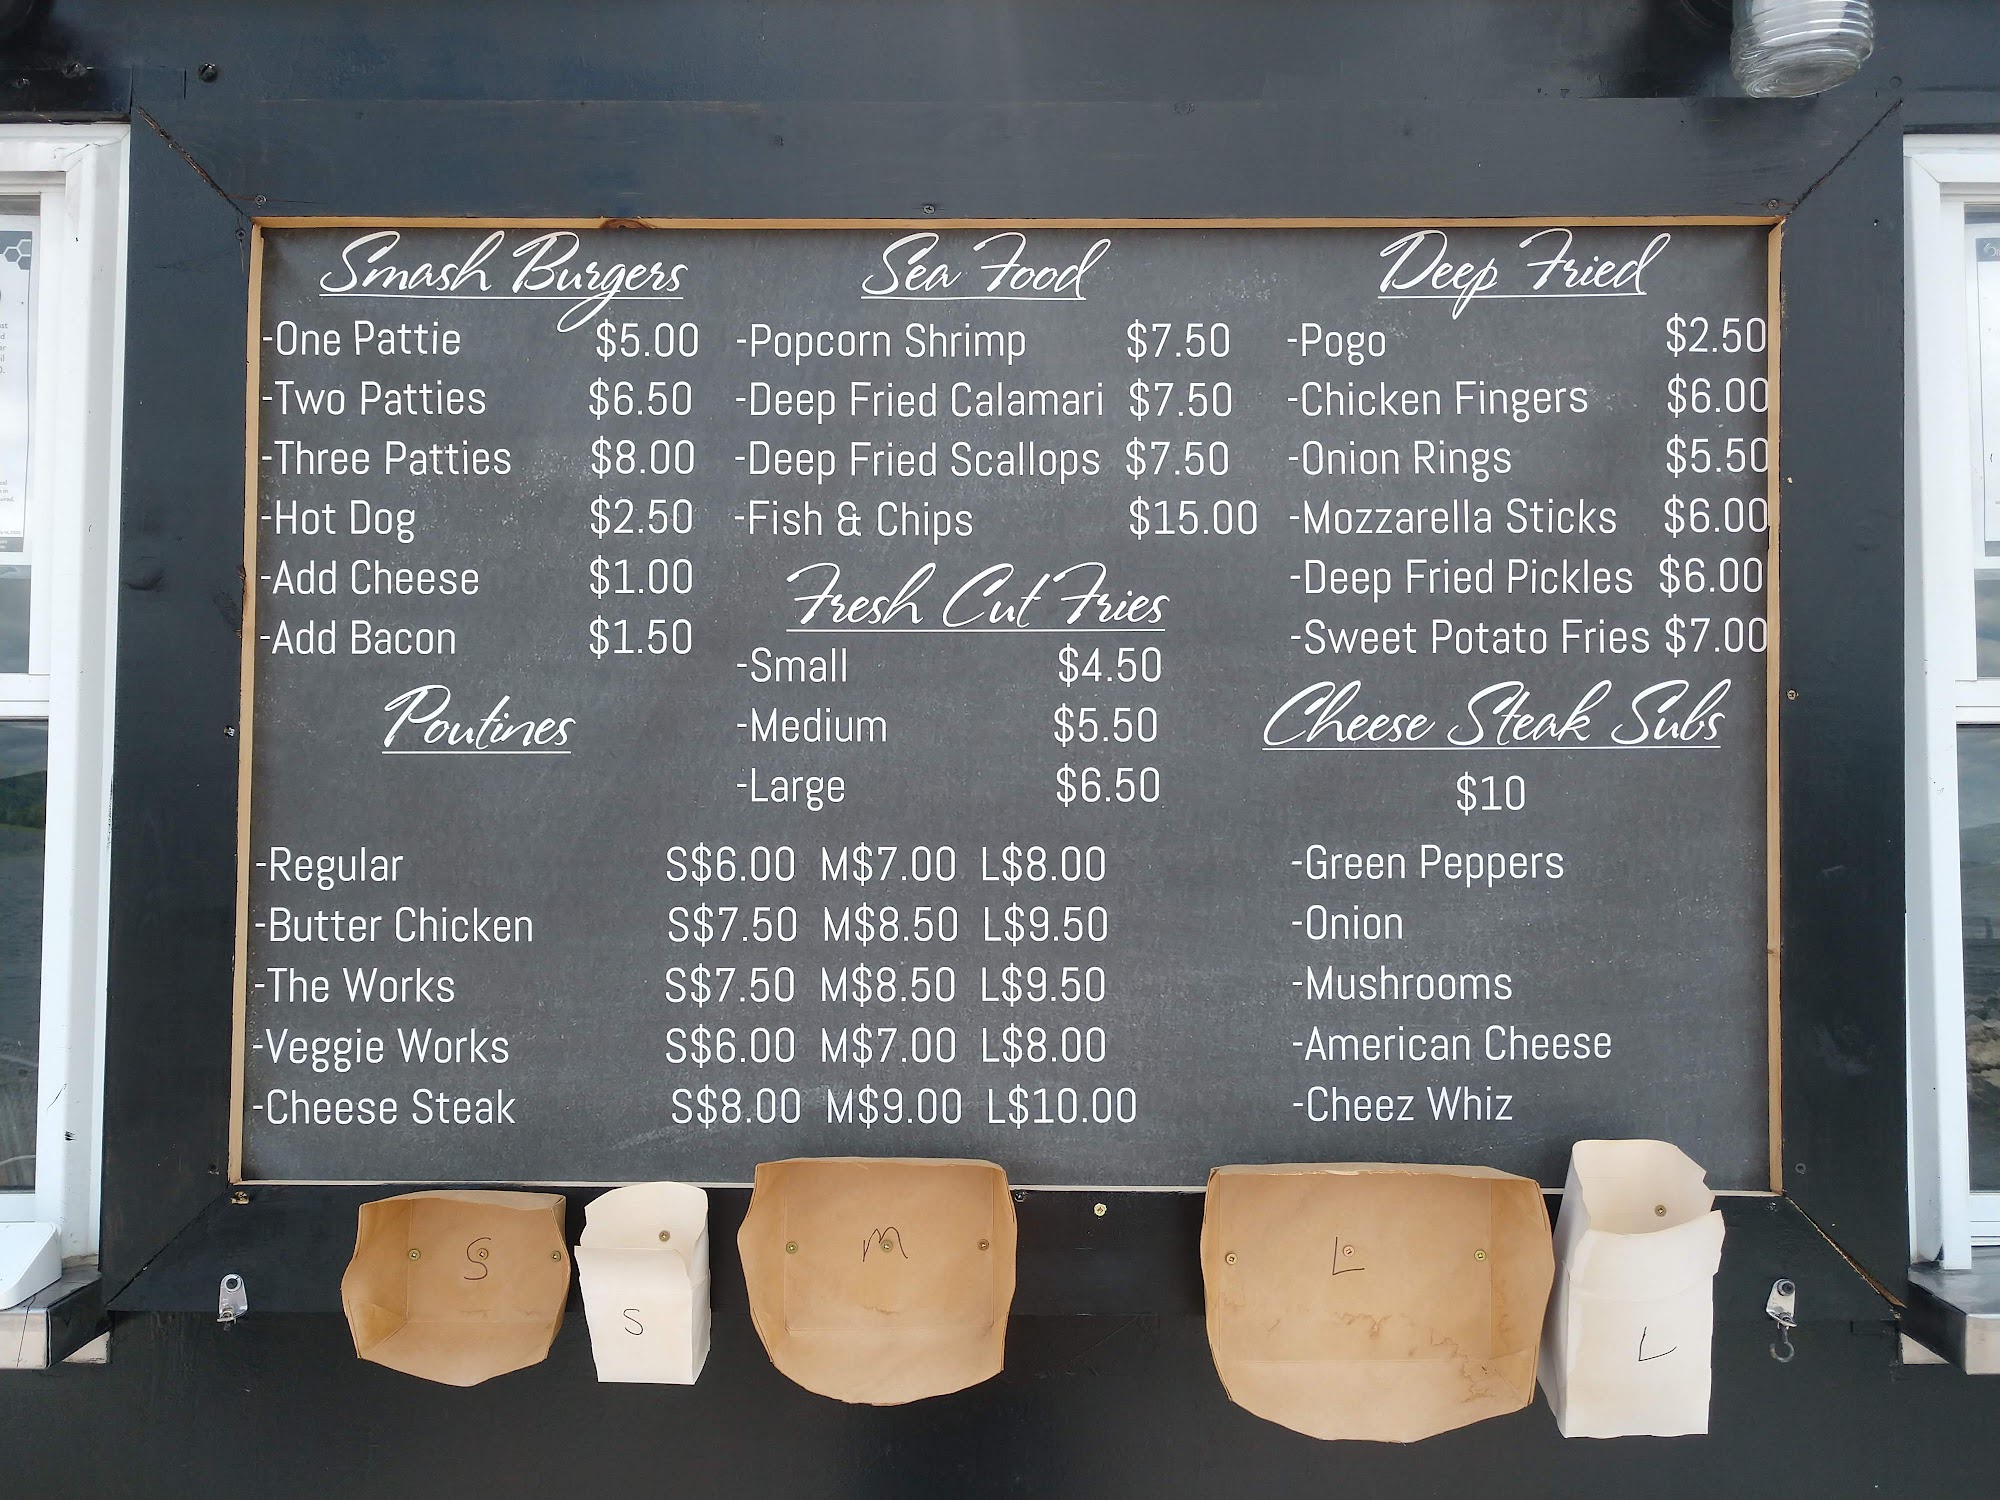 Smash Burgers
-One Pattie $5.00
-Two Patties $6.50
-Three Patties $8.00
-Hot Dog $2.50
-Add Cheese $1.00
-Add Bacon $1.50
Sea Food
-Popcorn Shrimp $7.50
-Deep Fried Calamari $7.50
-Deep Fried Scallops $7.50
-Fish & Chips $15.00
Fresh Cut Fries
-Small $4.50
-Medium $5.50
-Large $6.50
Deep Fried
-Pogo $2.50
-Chicken Fingers $6.00
-Onion Rings $5.50
-Mozzarella Sticks $6.00
-Deep Fried Pickles $6.00
-Sweet Potato Fries $7.00
Poutines
-Regular S$6.00 M$7.00 L$8.00
-Butter Chicken S$7.50 M$8.50 L$9.50
-The Works S$7.50 M$8.50 L$9.50
-Veggie Works S$6.00 M$7.00 L$8.00
-Cheese Steak S$8.00 M$9.00 L$10.00
Cheese Steak Subs
$10
-Green Peppers
-Onion
-Mushrooms
-American Cheese
-Cheez Whiz
S
S
M
L
L